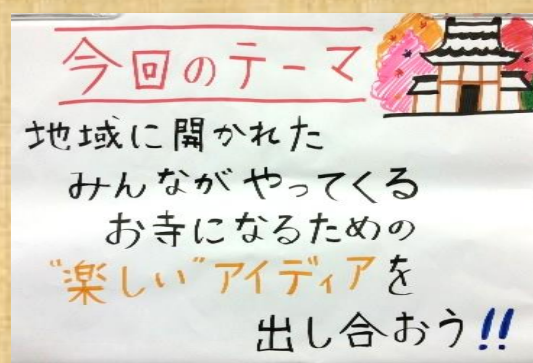 今回のテーマ
地域に開かれた
みんながやってくる
お寺になるための
“楽しい”アイディアを
出し合おう!!